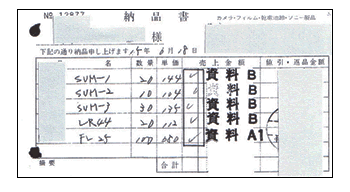 No 12877 納品書 カメラ・フィルム・
様
下記の通り納品申し上げます 15年 6月18日
名 数量 単価 売上金額 値引・返品金額
SUM-1 20 144 ✓ 資料B
SUM-2 10 104 資料B
SUM-3 30 135 ✓ 資料B
LR44 20 112 ✓ 資料B
FL-25 100 080 ✓ 資料A1
摘要 合計